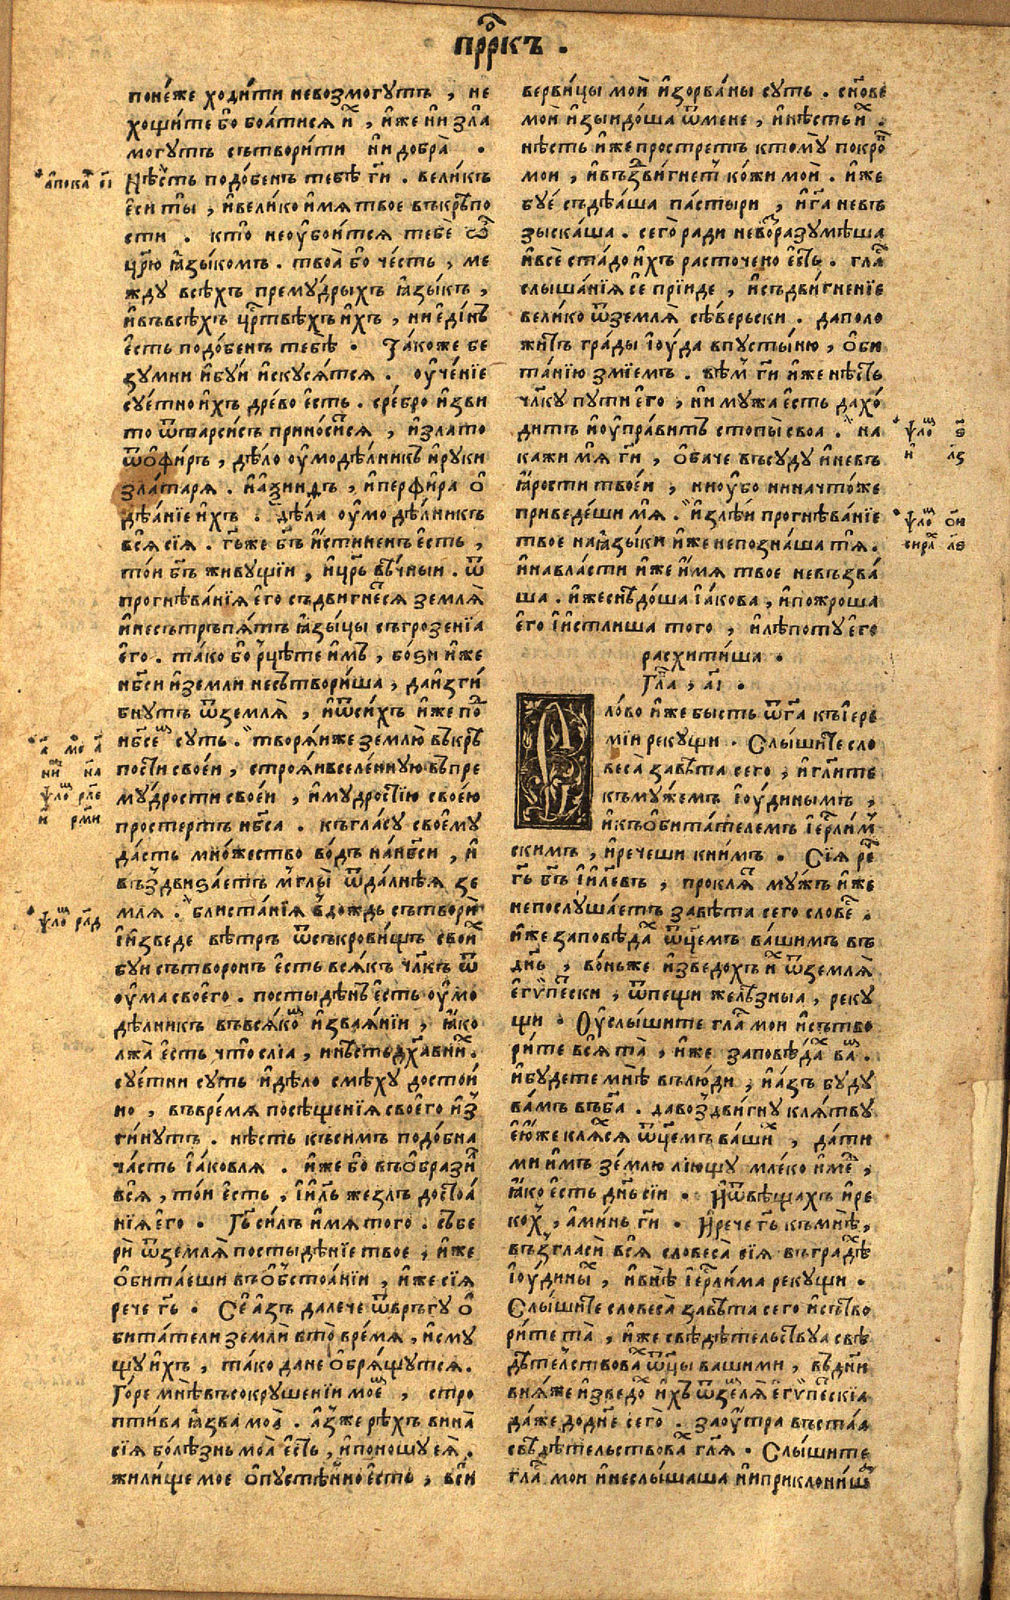 прⷪ҇ркъ .
поне́же ходи́ти невозмогутъ , не
хощи́те бо боа́тися и҆̑ , и҆́же ни зла
могутъ сътвори́ти ни добра̀ .
а҆пока́л єı
Нѣ́сть подо́бенъ тебѣ̀ гⷭ҇и . вели́къ
е҆си ты̀ , и҆вели́ко и҆́мя твое въкрѣ́по
сти . кто̀ неоу҆бои́тся тебѐ ѽ
цр҃ю ꙗ҆зы́комъ . твоа̀ бо че́сть , ме
жду всѣ́хъ прему́дрыхъ ꙗ҆зы́къ ,
и҆въвсѣ́хъ црⷭ҇твѣхъ и҆́хъ , ни е҆ди́нъ
е҆́сть подо́бенъ тебѣ̀ . Та́коже бе
зу́мни и҆бу́и и҆скуся́тся . оу҆че́нїе
суе́тно и҆́хъ дре́во е҆́сть . сре́бро и҆зви
то ѿтарси́съ прино́сится , и҆зла́то
ѿо҆фи́ръ , дѣ́ло оу҆модѣ́лникъ и҆руки
зла́таря . и҆а҆ки́нтъ , и҆перфи́ра о҆
дѣ́анїе и҆́хъ . дѣ́ла оу҆модѣ́лникъ
вся̀ сїя̀ . гь҃же бг҃ъ и҆́стиненъ е҆́сть ,
то́и бг҃ъ живу́щїи , и҆цр҃ь вѣ́чныи . ѿ
прогнѣва́нїя е҆го съдви́гнется земля̀
и҆несътръпя́тъ ꙗ҆зы́цы съгрозе́нїа
е҆го . та́ко бо рцѣ́те и҆́мъ , бо́ѕи и҆же
нб҃си и҆земли несътвори́ша , даи҆зги́
бнутъ ѿземля̀ , и҆ѿси́хъ и҆́же по́д
нб҃сем сутъ . творя́и҆же зе́млю въкрѣ
пости своеи , строя́ивселе́нную въпре
му́дрости свое́и , и҆му́дростїю свое́ю
простертъ нб҃са . къгла́су своему
да́стъ мно́жество во́дъ нанб҃си , и҆
въздви́ѕаетъ мглы̀ ѿда́лнѣя зе
мля . блиста́нїя въдо́ждь сътвори̏
и҆и҆зведе вѣ́тръ ѿсъкро́вищъ свои́х
бу́и сътворе́нъ е҆́сть вся́къ чл҃къ ѿ
оу҆ма свое́го . посты́дѣнъ е҆́сть оу҆мо
дѣ́лникъ въвся́ком и҆зваянїи , ꙗ҆́ко
лжа̀ е҆́сть что̀ слїа , и҆нѣ́стьдꙋ́х внихъ .
суе́тни су́ть и҆дѣ́ло смѣ́ху досто́и
но , въвре́мя посѣще́нїя своего и҆з
ги́нутъ . нѣ́сть къси́мъ подо́бна
ча́сть ı҆а́ковля . и҆́же бо въо҆брази̏
вся̀ , то́и е҆́сть , и҆ı҆и҃ль же́злъ достоа́
нїя е҆го . Гь҃ си́лъ и҆́мя того . събе
рѝ ѿземля̀ постыдѣ́нїе твое , и҆́же
о҆бита́еши въо҆бъстоа́нїи , и҆́же сїя̀
рече гь҃ . Се а҆́зъ дале́че ѿвръ́гу о҆
бита́тели земли втòвре́мя , и҆сму
щу и҆́хъ , та́ко дане о҆бря́щутся .
Го́ре мнѣ̀ въсокруше́нїи моем , стро
пти́ва ꙗ҆́зва моа̀ . а҆́зже рѣ́хъ вина̀
сїя бо́лѣзнь моа̀ е҆́сть , и҆поношу ея .
жили́ще мое о҆пустѣ́но е҆́сть , вси
верви́цы моѝ и҆зорва́ны су́ть . сн҃ове
моѝ и҆зыидо́ша ѿмене , и҆нѣ́сть и҆̑ .
нѣ́сть и҆́же простре́тъ ктому̀ покров
мои , и҆въздви́гнет ко́жи моѝ . и҆́же
буе съдѣ́аша па́стыри , и҆га҃ невъ
зыска́ша . сего ра́ди неворазумѣ́ша
и҆всѐ ста́до и҆́хъ расточено е҆́сть . гла́с
слы́шанїя се прїи́де , и҆съдви́гненїе
вели́ко ѿземля̀ сѣ́верьски . даполо
жи́тъ гра́ды ı҆оу́да впусты́ню , о҆би
та́нїю змїе́мъ . вѣ́мъ гⷭ҇и и҆же нѣ́сть
чл҃ку пути е҆го , ни му́жа е҆сть дахо́
дитъ и҆оу҆пра́витъ стопы̀ своа . на
кажи мя гⷭ҇и , о҆ба́че въсуду и҆невъ
ꙗ҆́рости твое́и , ниоу҆бо ниначто́же
приведе́ши мя . и҆злѣ́и прогнѣва́нїе
твое наꙗ҆зы́ки и҆́же непозна́ша тя .
и҆навла́сти и҆́же и҆́мя твое невъзва́
ша . и҆́жеснѣдо́ша ı҆а́кова , и҆пожро́ша
е҆го и҆и҆стли́ша того , и҆лѣ́поту е҆го
расхити́ша .
Гла́ , аı .
Сло́во и҆́же бысть ѿга҃ къı҆ере
мїи рекущи . Слы́шите сло
веса̀ завѣ́та сего , и҆гл҃ите
къму́жемъ ı҆оу́динымъ ,
и҆къо҆бита́телемъ ı҆ерⷭ҇ли́м
скимъ , и҆рече́ши кни́мъ . Сїя рече
гь҃ бг҃ъ ı҆и҃левъ , про́клят му́жъ и҆́же
непослу́шаетъ завѣ́та сего слове́с .
и҆́же заповѣ́дах ѿце́мъ ва́шимъ въ
дн҃ь , во́ньже и҆зведо́хъ и҆̑ ѿземля̀
е҆гѵ́петски , ѿпещи желѣ́зныа , реку
щи . Оу҆слы́шите гла́с мои и҆сътво
ри́те вся̀ та̀ , и҆́же заповѣ́дах вам .
и҆бу́дете мнѣ̀ влю́ди , и҆а҆́зъ бу́ду
ва́мъ въбг҃а . давоздви́гну кля́тву
е҆ю́же кля́хся ѿце́мъ ва́шим , да́ти
ми и҆́мъ зе́млю лїющу млеко и҆мед ,
ꙗ҆́ко е҆́сть дн҃ь сїи . И҆ѿвѣща́хъ и҆ре
ко́х , а҆ми́нь гⷭ҇и . И҆рече гь҃ къмнѣ̀ ,
възгласѝ вся̀ словеса̀ сїя̀ въгра́дѣ
ı҆оу́дины , и҆внѣ̀ ı҆ерⷭ҇ли́ма рекущи .
Слы́шите словеса̀ завѣ́та сего и҆сътво
ри́те та̀ , и҆́же свѣдѣ́тельствуа свѣ
дѣ́телствовах ѿцы̀ ва́шими , въдн҃и
вня́же и҆зведо́х и҆́хъ ѿземля̀ е҆гѵ́петскїа
да́же додн҃е сего̀ . заоу́тра въста́а
свѣдѣ́тельствовах гл҃я . Слы́шите
гла́с мои и҆неслы́шаша ниприклони́ша